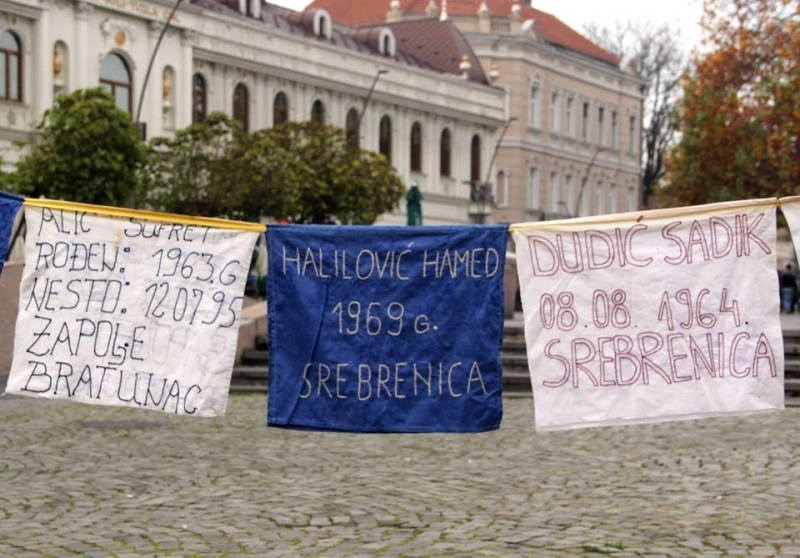 ALIĆ SUFRET
ROĐEN: 1963.G
NESTO: 12 07 95
ZAPOLJE
BRATUNAC
HALILOVIĆ HAMED
1969 G.
SREBRENICA
DUDIĆ SADIK
08.08.1964.
SREBRENICA